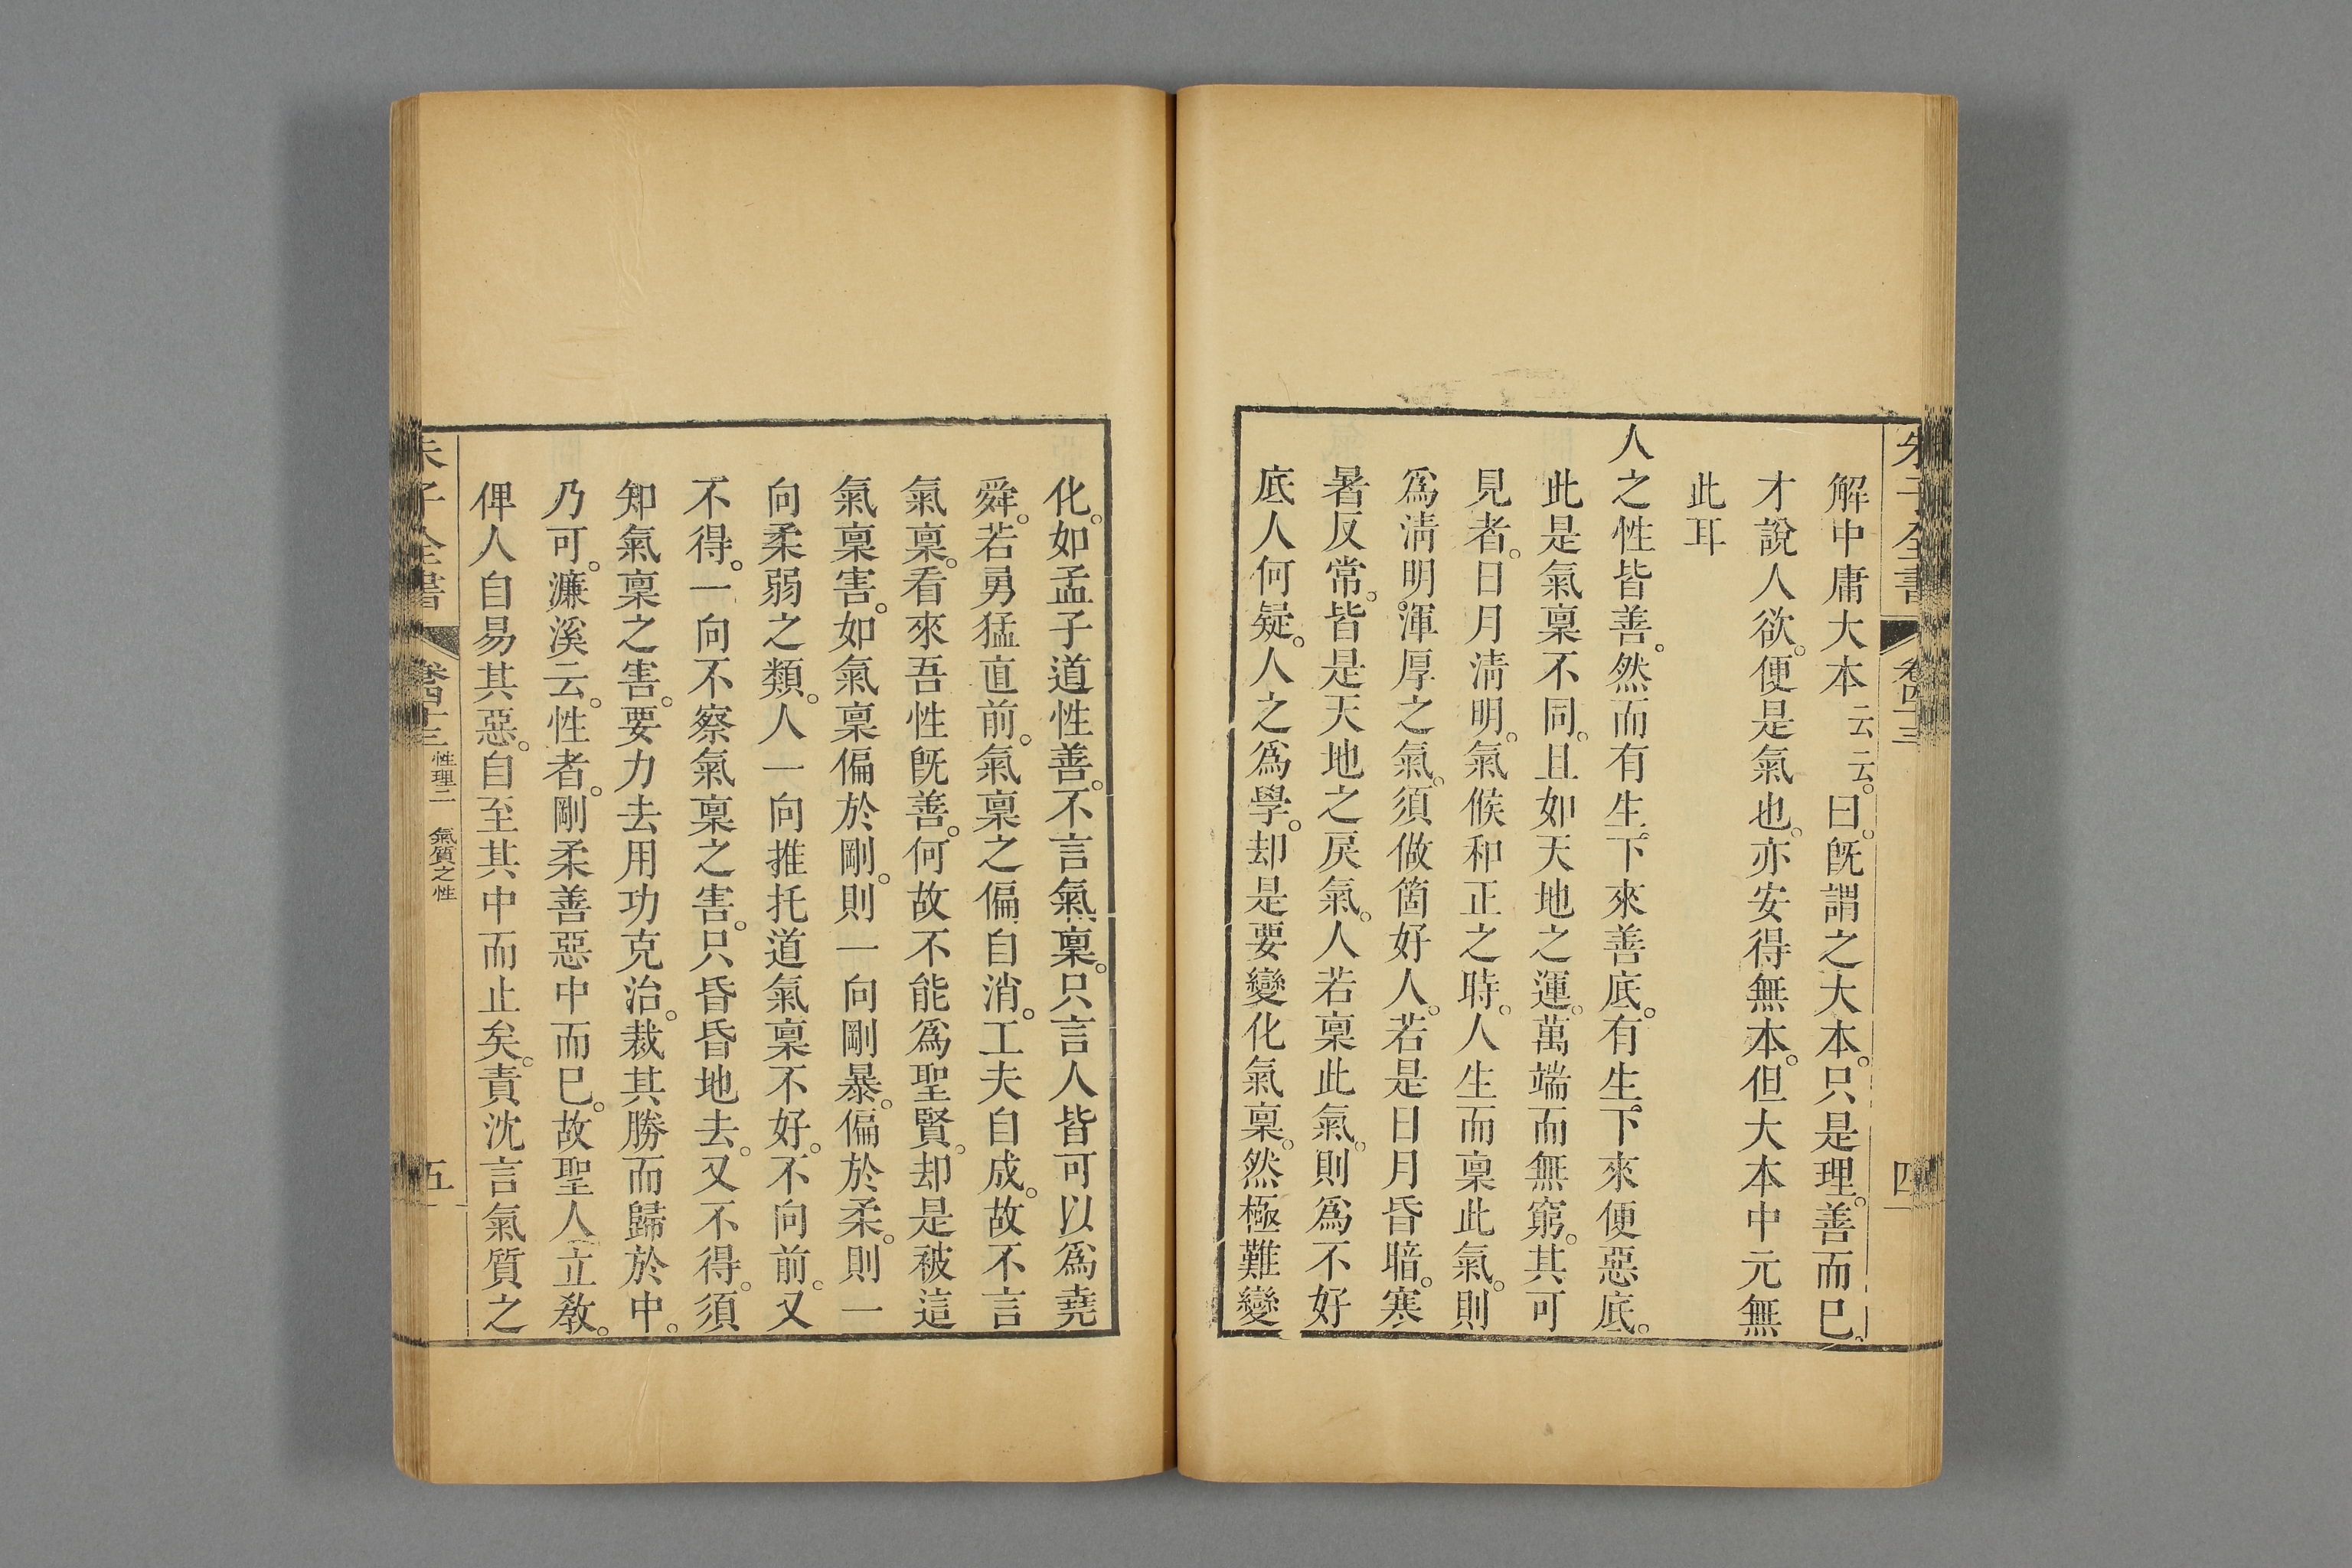 朱子全書 卷四十三 四
解中庸大本云云。曰。旣謂之大本。只是理。善而已。
才說人欲。便是氣也。亦安得無本。但大本中元無
此耳
人之性皆善。然而有生下來善底。有生下來便惡底。
此是氣稟不同。且如天地之運。萬端而無窮。其可
見者。日月淸明。氣候和正之時。人生而稟此氣。則
爲淸明渾厚之氣。須做箇好人。若是日月昏暗。寒
暑反常。皆是天地之戾氣。人若稟此氣。則爲不好
底人何疑。人之爲學。却是要變化氣稟。然極難變
化。如孟子道性善。不言氣稟。只言人皆可以爲堯
舜。若勇猛直前。氣稟之偏自消。工夫自成。故不言
氣稟。看來吾性旣善。何故不能爲聖賢。却是被這
氣稟害。如氣稟偏於剛。則一向剛暴。偏於柔。則一
向柔弱之類。人一向推托道氣稟不好。不向前。又
不得。一向不察氣稟之害。只昏昏地去。又不得。須
知氣稟之害。要力去用功克治。裁其勝而歸於中。
乃可。濂溪云。性者。剛柔善惡中而已。故聖人立敎。
俾人自易其惡。自至其中而止矣。責沈言氣質之
朱子全書 卷四十三 性理二 氣質之性 五